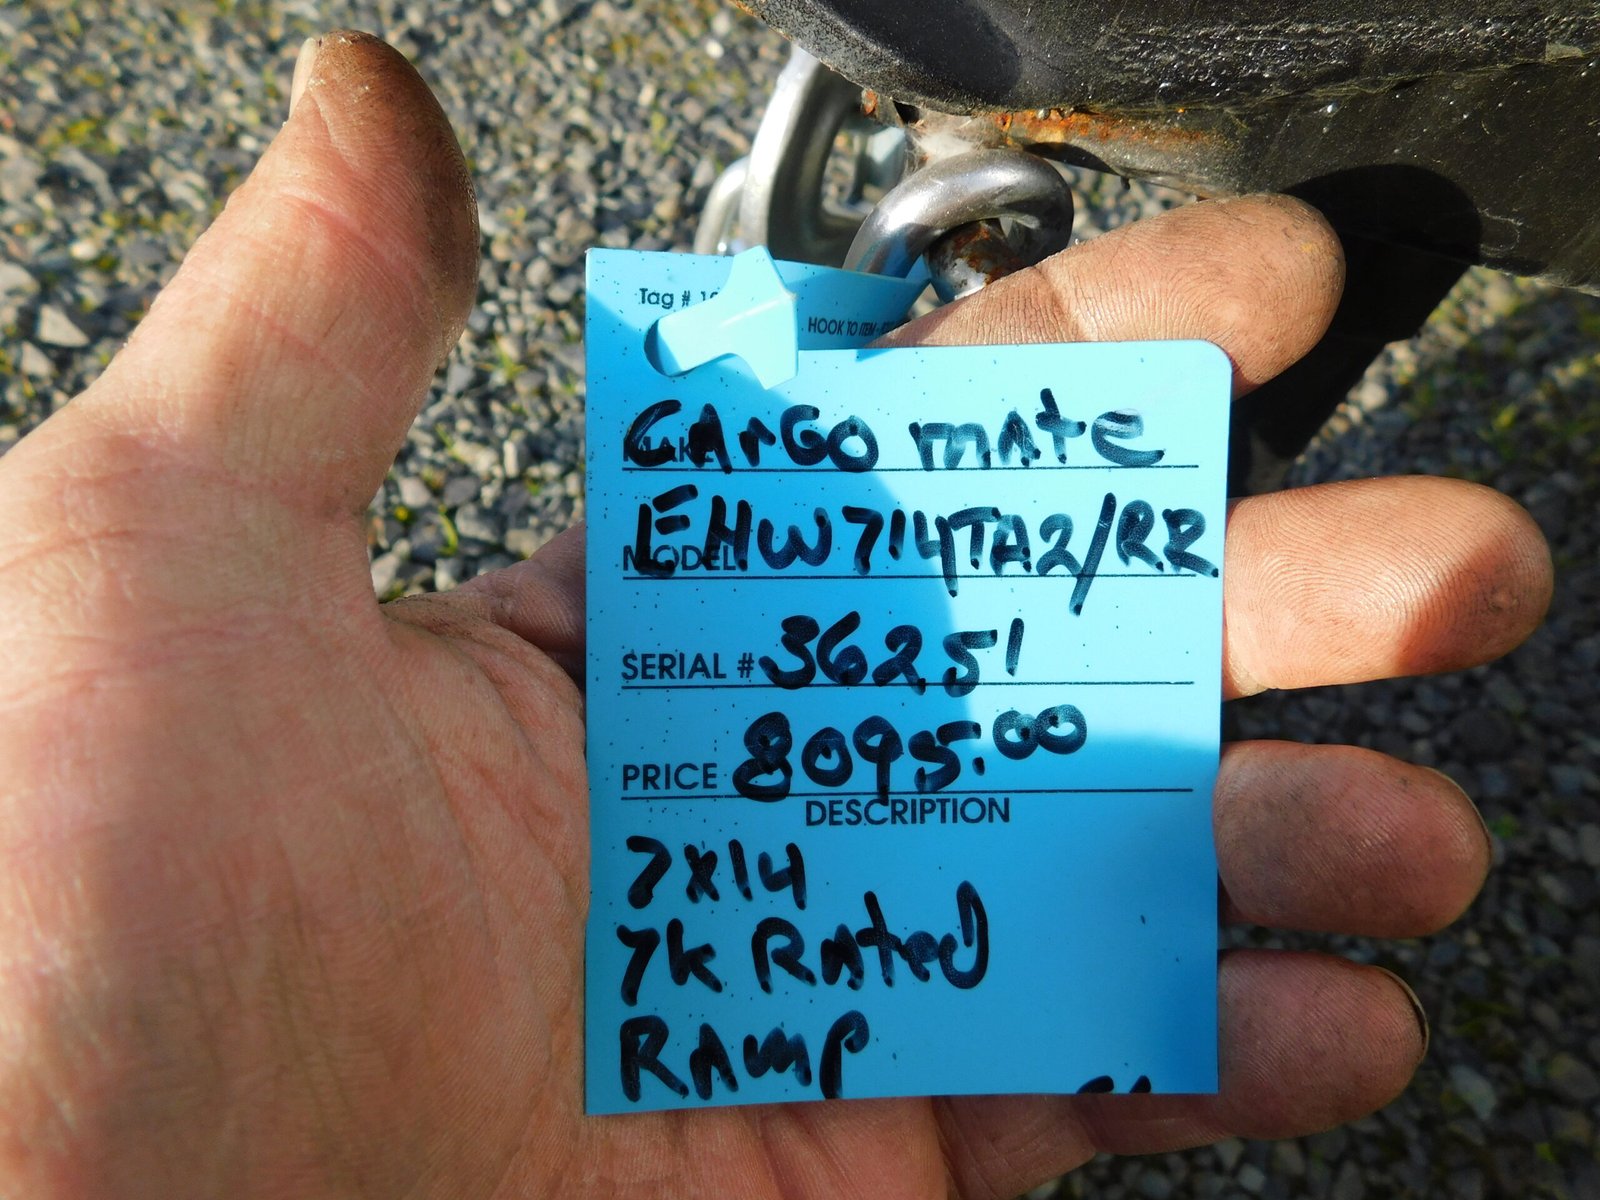 Tag # 10
HOOK TO ITEM
MAKE CArGO mAte
MODEL EHW714TA2/RR
SERIAL # 36251
PRICE 8095.00
DESCRIPTION
7x14
7k RAted
RAmp